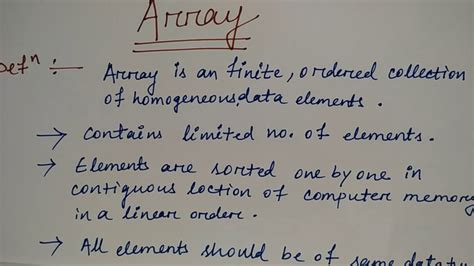 Array
Defⁿ :- Array is an finite, ordered collection
of homogeneous data elements.
→ Contains limited no. of elements.
→ Elements are sorted one by one in
contiguous loction of computer memory
in a linear order.
→ All elements should be of same data